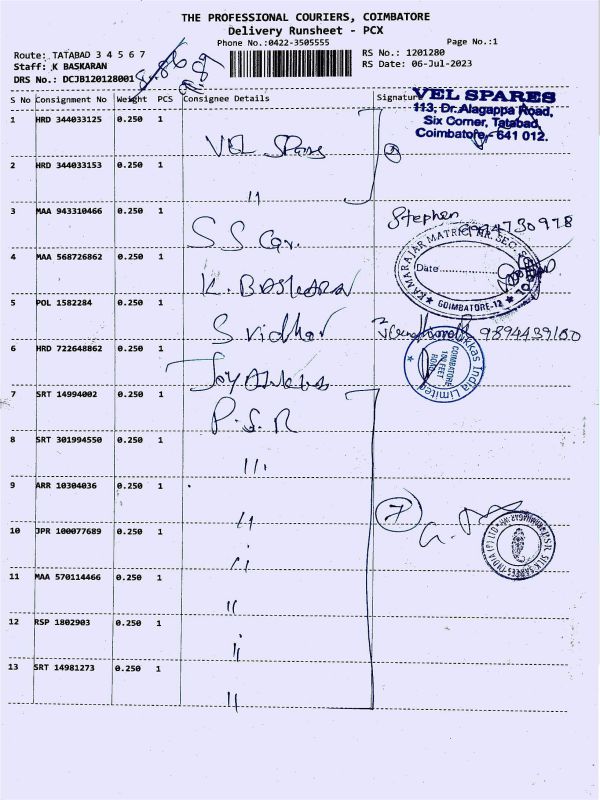 THE PROFESSIONAL COURIERS, COIMBATORE
Delivery Runsheet - PCX
Phone No.:0422-3505555
Page No.:1
Route: TATABAD 3 4 5 6 7
RS No.: 1201280
Staff: K BASKARAN
RS Date: 06-Jul-2023
DRS No.: DCJB120128001
S No Consignment No Weight PCS Consignee Details Signature
VEL SPARES
113, Dr. Alagappa Road,
Six Corner, Tatabad,
Coimbatore - 641 012.
1 HRD 344033125 0.250 1 VEL Spares
2 HRD 344033153 0.250 1 11
3 MAA 943310466 0.250 1 S S Cor. Stephen
4 MAA 568726862 0.250 1 K. BASKARAN
KAMARAJAR MATRIC. HR. SEC.
Date
COIMBATORE-12
5 POL 1582284 0.250 1 Sridhar 9894439160
6 HRD 722648862 0.250 1 Joyalukkas
India Limited
COIMBATORE
100 FEET
ROAD
7 SRT 14994002 0.250 1 P.S.R
8 SRT 301994550 0.250 1 11.
9 ARR 10304036 0.250 1 11
7
10 JPR 100077689 0.250 1 11
P.S.R. SILK SAREES INDIA (P) LTD
11 MAA 570114466 0.250 1 11
12 RSP 1802903 0.250 1 11
13 SRT 14981273 0.250 1 11